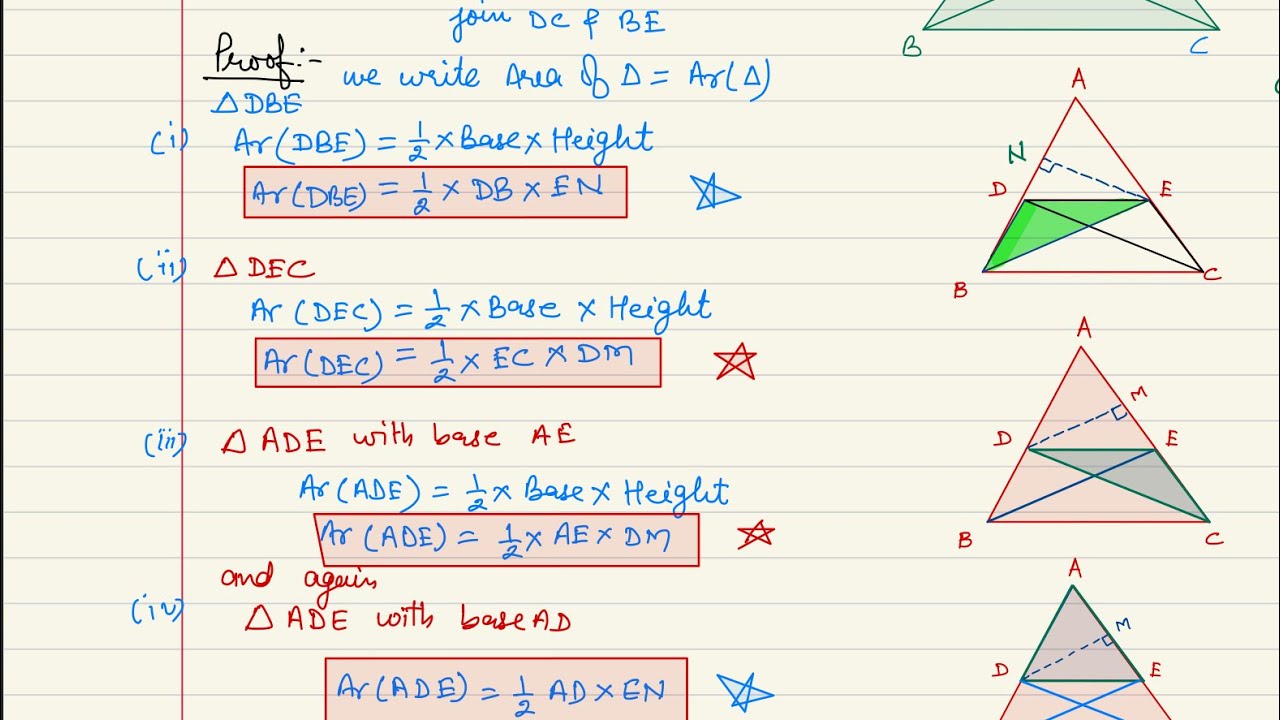 join DC & BE
Proof:-
we write Area of Δ = Ar(Δ)
Δ DBE
(i) Ar(DBE) = 1/2 × Base × Height
Ar(DBE) = 1/2 × DB × EN
(ii) Δ DEC
Ar(DEC) = 1/2 × Base × Height
Ar(DEC) = 1/2 × EC × DM
(iii) Δ ADE with base AE
Ar(ADE) = 1/2 × Base × Height
Ar(ADE) = 1/2 × AE × DM
and again
(iv) Δ ADE with base AD
Ar(ADE) = 1/2 AD × EN
B C
A
N
D E
B C
A
M
D E
B C
A
M
D E